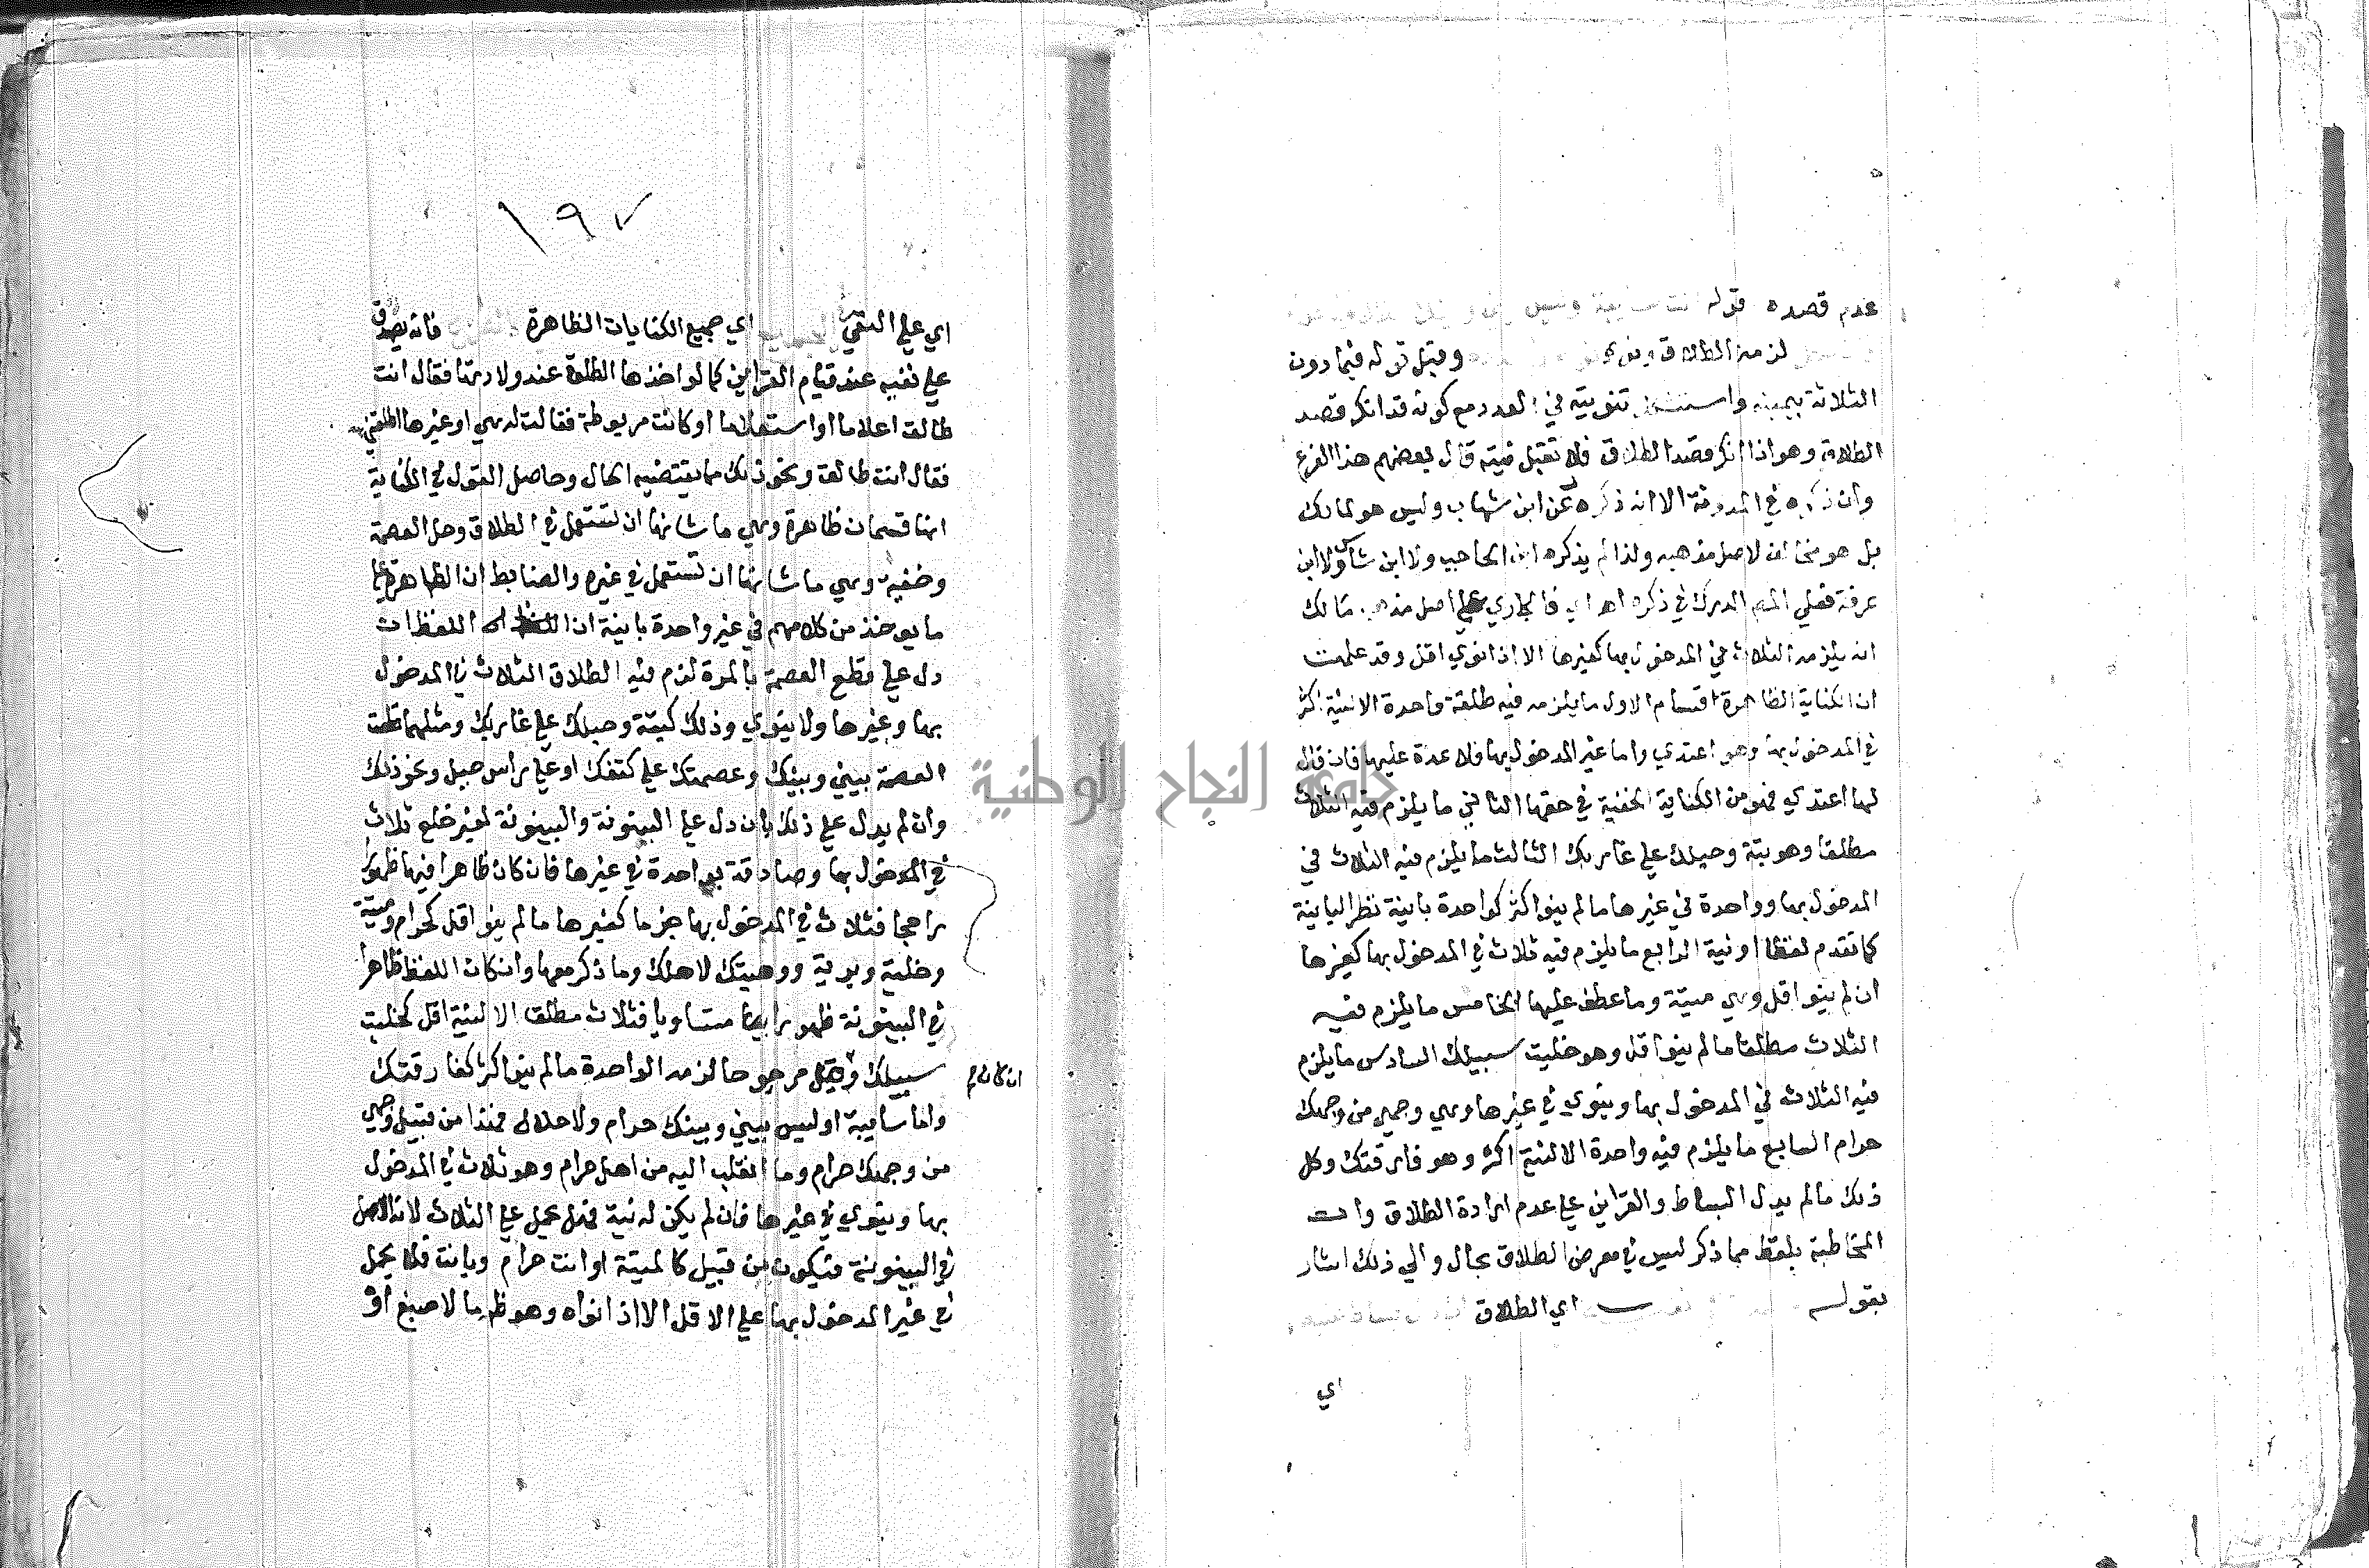 عدم قصده قوله انت سايبة وليس
لزمه الطلاق ونوي وقبل قوله فيما دون
الثلاثة بيمينه واستشكل تنويته في العدد مع كونه قد انكر قصد
الطلاق وهو اذا انكر قصد الطلاق فلا تقبل نيته قال بعضهم هذا الفرع
وان ذكره في المدونة الا انه ذكره عن ابن شهاب وليس هو لمالك
بل هو مخالف لاصل مذهبه ولذا لم يذكره ابن الحاجب ولا ابن شاس ولا ابن
عرفة فعلي المصنف الدرك في ذكره اهـ اي فالجاري علي اصل مذهب مالك
انه يلزمه الثلاث في المدخول بها كغيرها الا اذا نوي اقل وقد علمت
ان الكناية الظاهرة اقسام الاول ما يلزمه فيه طلقة واحدة الا لنية اكثر
في المدخول بها وهو اعتدي واما غير المدخول بها فلا عدة عليها فان قال
لها اعتدي فهو من الكناية الخفية في حقها الثاني ما يلزم فيه الثلاث
مطلقا وهو بتة وحبلك علي غاربك الثالث ما يلزم فيه الثلاث في
المدخول بها وواحدة في غيرها ما لم ينو اكثر كواحدة باينة نظرا لباينة
كما تقدم لفظا او نية الرابع ما يلزم فيه ثلاث في المدخول بها كغيرها
ان لم ينو اقل وهي ميتة وما عطف عليها الخامس ما يلزم فيه
الثلاث مطلقا ما لم ينو اقل وهو خليت سبيلك السادس ما يلزم
فيه الثلاث في المدخول بها وينوي في غيرها وهي وجهي من وجهك
حرام السابع ما يلزم فيه واحدة الا لنية اكثر وهو فارقتك وكل
ذلك ما لم يدل البساط والقراين علي عدم ارادة الطلاق وان
المخاطبة بلفظ مما ذكر ليس في معرض الطلاق بحال والي ذلك اشار
بقوله اي الطلاق
اي
١٩٧
اي علي النفي اي جميع الكنايات الظاهرة فانه يصدق
علي نفيه عند قيام القراين كما لو اخذها الطلق عند ولادتها فقال انت
طالق اعلاما او استعلاما او كانت مربوطة فقالت له هي او غيرها اطلقني
فقال انت طالق ونحو ذلك مما يقتضيه الحال وحاصل القول في الكناية
انها قسمان ظاهرة وهي ما شانها ان تستعمل في الطلاق وحل العصمة
وخفية وهي ما شانها ان تستعمل في غيره والضابط ان الظاهرة علي
ما يوخذ من كلامهم في غير واحدة باينة ان اللفظ ان
دل علي قطع العصمة بالمرة لزم فيه الطلاق الثلاث في المدخول
بها وغيرها ولا ينوي وذلك كبتة وحبلك علي غاربك ومثلهما قطعت
العصمة بيني وبينك وعصمتك علي كتفك او علي راس جبل ونحو ذلك
وان لم يدل علي ذلك بان دل علي البينونة والبينونة لغير خلع ثلاث
في المدخول بها وصادقة بواحدة في غيرها فان كان ظاهرا فيها ظهورا
راجحا فثلاث في المدخول بها جزما كغيرها ما لم ينو اقل كحرام وميتة
وخلية وبرية ووهبتك لاهلك وما ذكر معها وان كان اللفظ ظاهرا
في البينونة ظهورا ايضا متساويا فثلاث مطلقا الا لنية اقل كخليت
سبيلك وقيل مرجوحا لزمه الواحدة ما لم ينو اكثر كفارقتك
ان كان
واما سايبة او ليس بيني وبينك حرام ولا حلال فهذا من قبيل وجهي
من وجهك حرام وما انقلب اليه من اهل حرام وهو ثلاث في المدخول
بها وينوي في غيرها فان لم يكن له نية فهل يحمل علي الثلاث لانه الاصل
في البينونة فتكون من قبيل كالميتة او انت حرام وبانت فلا يحمل
في غير المدخول بها علي الاقل الا اذا نواه وهو ظهر ما لاصبغ او